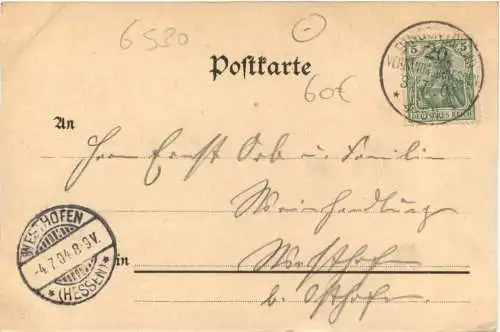 6530
60€
Postkarte
5 5
20
DEUTSCHES REICH
An
Herrn Ernst Orb u. Familie
Weinhandlung
in Westhofen
b. Osthofen
WESTHOFEN
-4.7.04.8-9V.
* (HESSEN) *